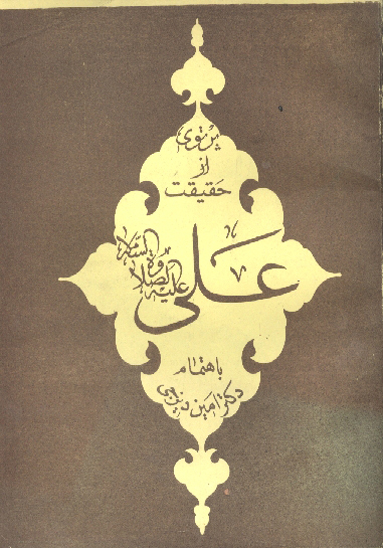 پرتوی
از
حقیقت
علی
علیه الصلاة والسلام
باهتمام
دکتر امین